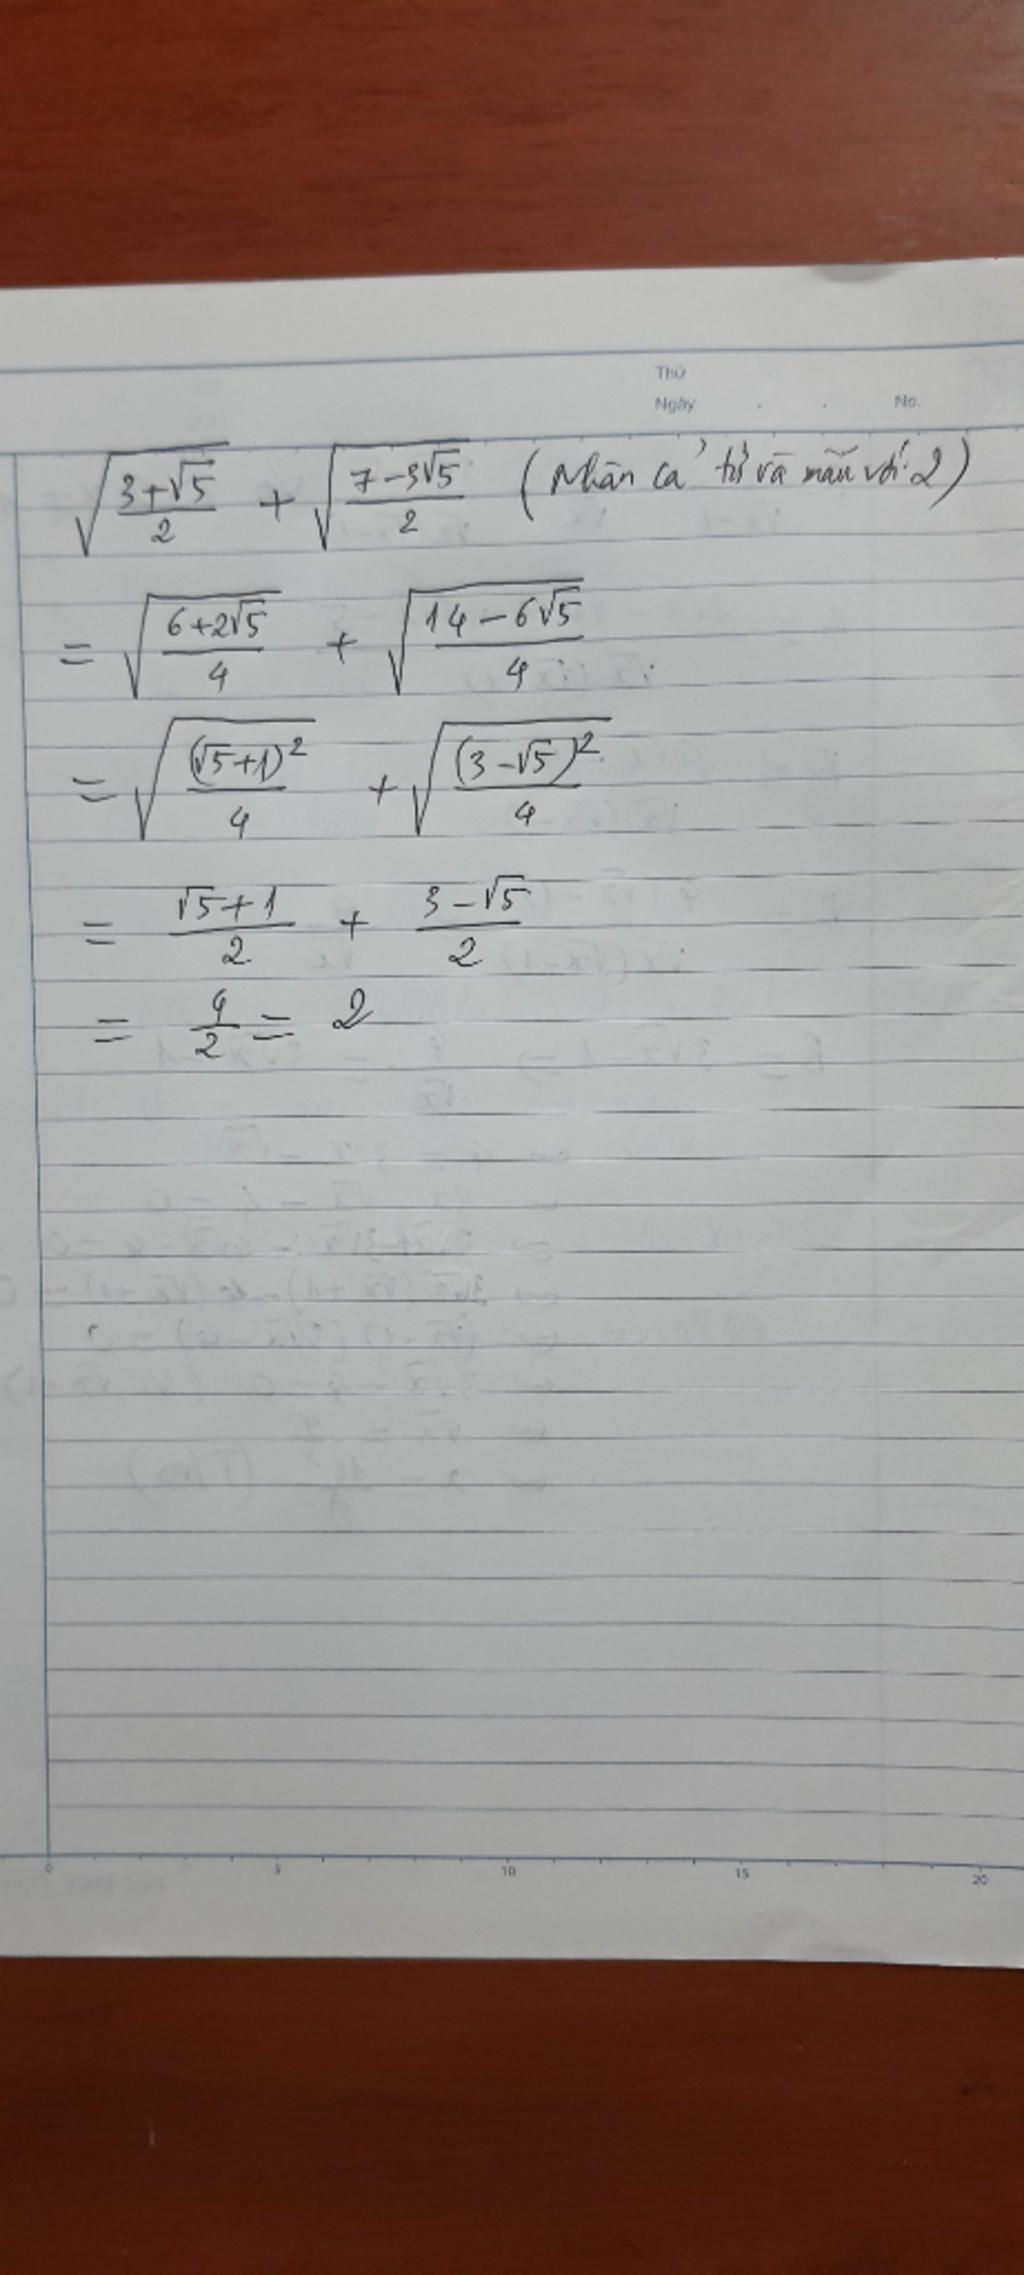 Thứ
Ngày . . No.
√((3+√5)/2) + √((7-3√5)/2) (Nhân cả tử và mẫu với 2)
= √((6+2√5)/4) + √((14-6√5)/4)
= √((√5+1)²/4) + √((3-√5)²/4)
= (√5+1)/2 + (3-√5)/2
= 4/2 = 2
0 5 10 15 20